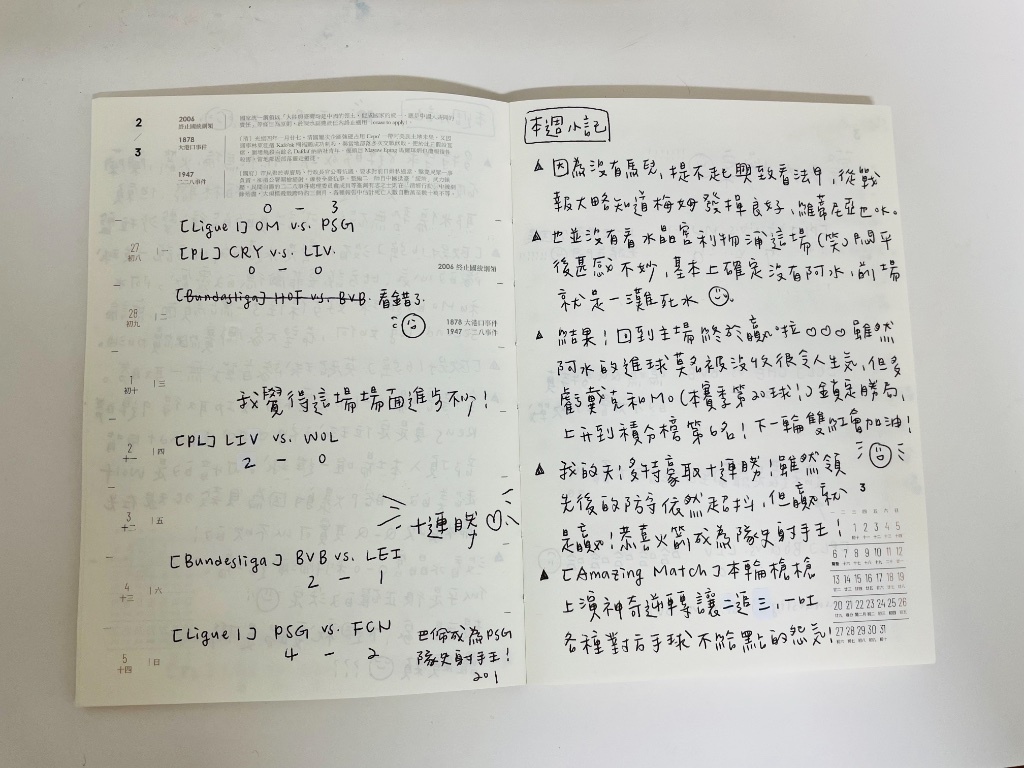 2
3
2006
終止國統綱領
1878
大港口事件
1947
二二八事件
0 - 3
[Ligue 1] OM vs. PSG
27
初八
一
[PL] CRY vs. LIV.
0 - 0
2006 終止國統綱領
[Bundesliga] HOF vs. BVB. 看錯了
28
初九
二
1878 大港口事件
1947 二二八事件
1
初十
三
我覺得這場場面進步不少!
2
十一
四
[PL] LIV vs. WOL
2 - 0
3
十二
五
十連勝
[Bundesliga] BVB vs. LEI
2 - 1
4
十三
六
[Ligue 1] PSG vs. FCN
4 - 2
巴佩成為PSG
隊史射手王!
201
5
十四
日
本週小記
▲ 因為沒有馬兒,提不起興致看法甲,從戰
報大略知道梅姆發揮良好,維蒂尼亞也ok。
▲ 也並沒有看水晶宮利物浦這場(笑)開平
後甚感不妙,基本上確定沒有阿水,前場
就是一灘死水
▲ 結果!回到主場終於贏啦♡♡♡雖然
阿水的進球莫名被沒收很令人生氣,但多
虧戴克和Mo(本賽季第20球!)鎖定勝局,
上升到積分榜第6名!下一輪雙紅會加油!
▲ 我的天!多特豪取十連勝!雖然領
先後的防守依然超抖,但贏就
是贏!恭喜火箭成為隊史射手王!
▲ [Amazing Match] 本輪槍槍
上演神奇逆轉讓二追三,一吐
各種對方手球不給點的怨氣!
3
一 二 三 四 五 六 日
1 2 3 4 5
6 7 8 9 10 11 12
13 14 15 16 17 18 19
20 21 22 23 24 25 26
27 28 29 30 31